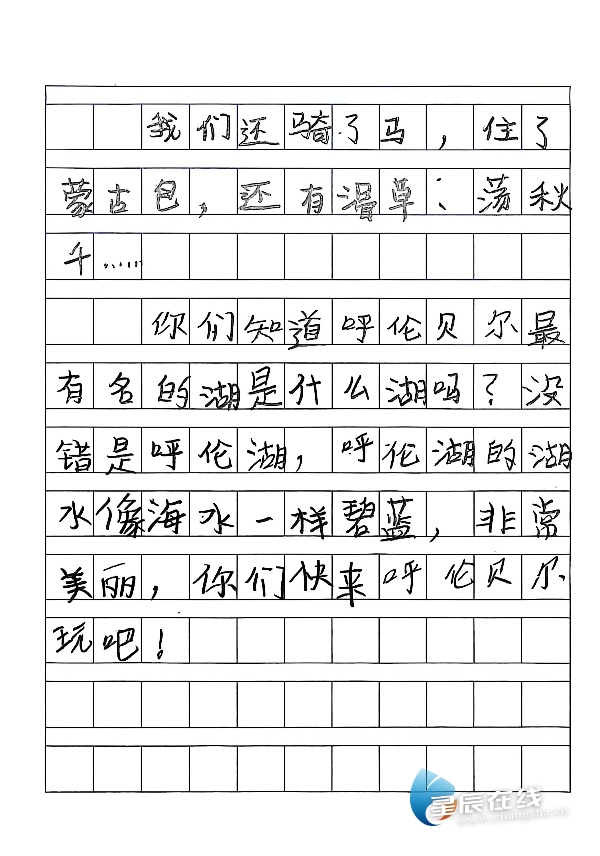 我们还骑了马，住了
蒙古包，还有滑草、荡秋
千……
你们知道呼伦贝尔最
有名的湖是什么湖吗？没
错是呼伦湖，呼伦湖的湖
水像海水一样碧蓝，非常
美丽，你们快来呼伦贝尔
玩吧！
星辰在线
www.changsha.cn